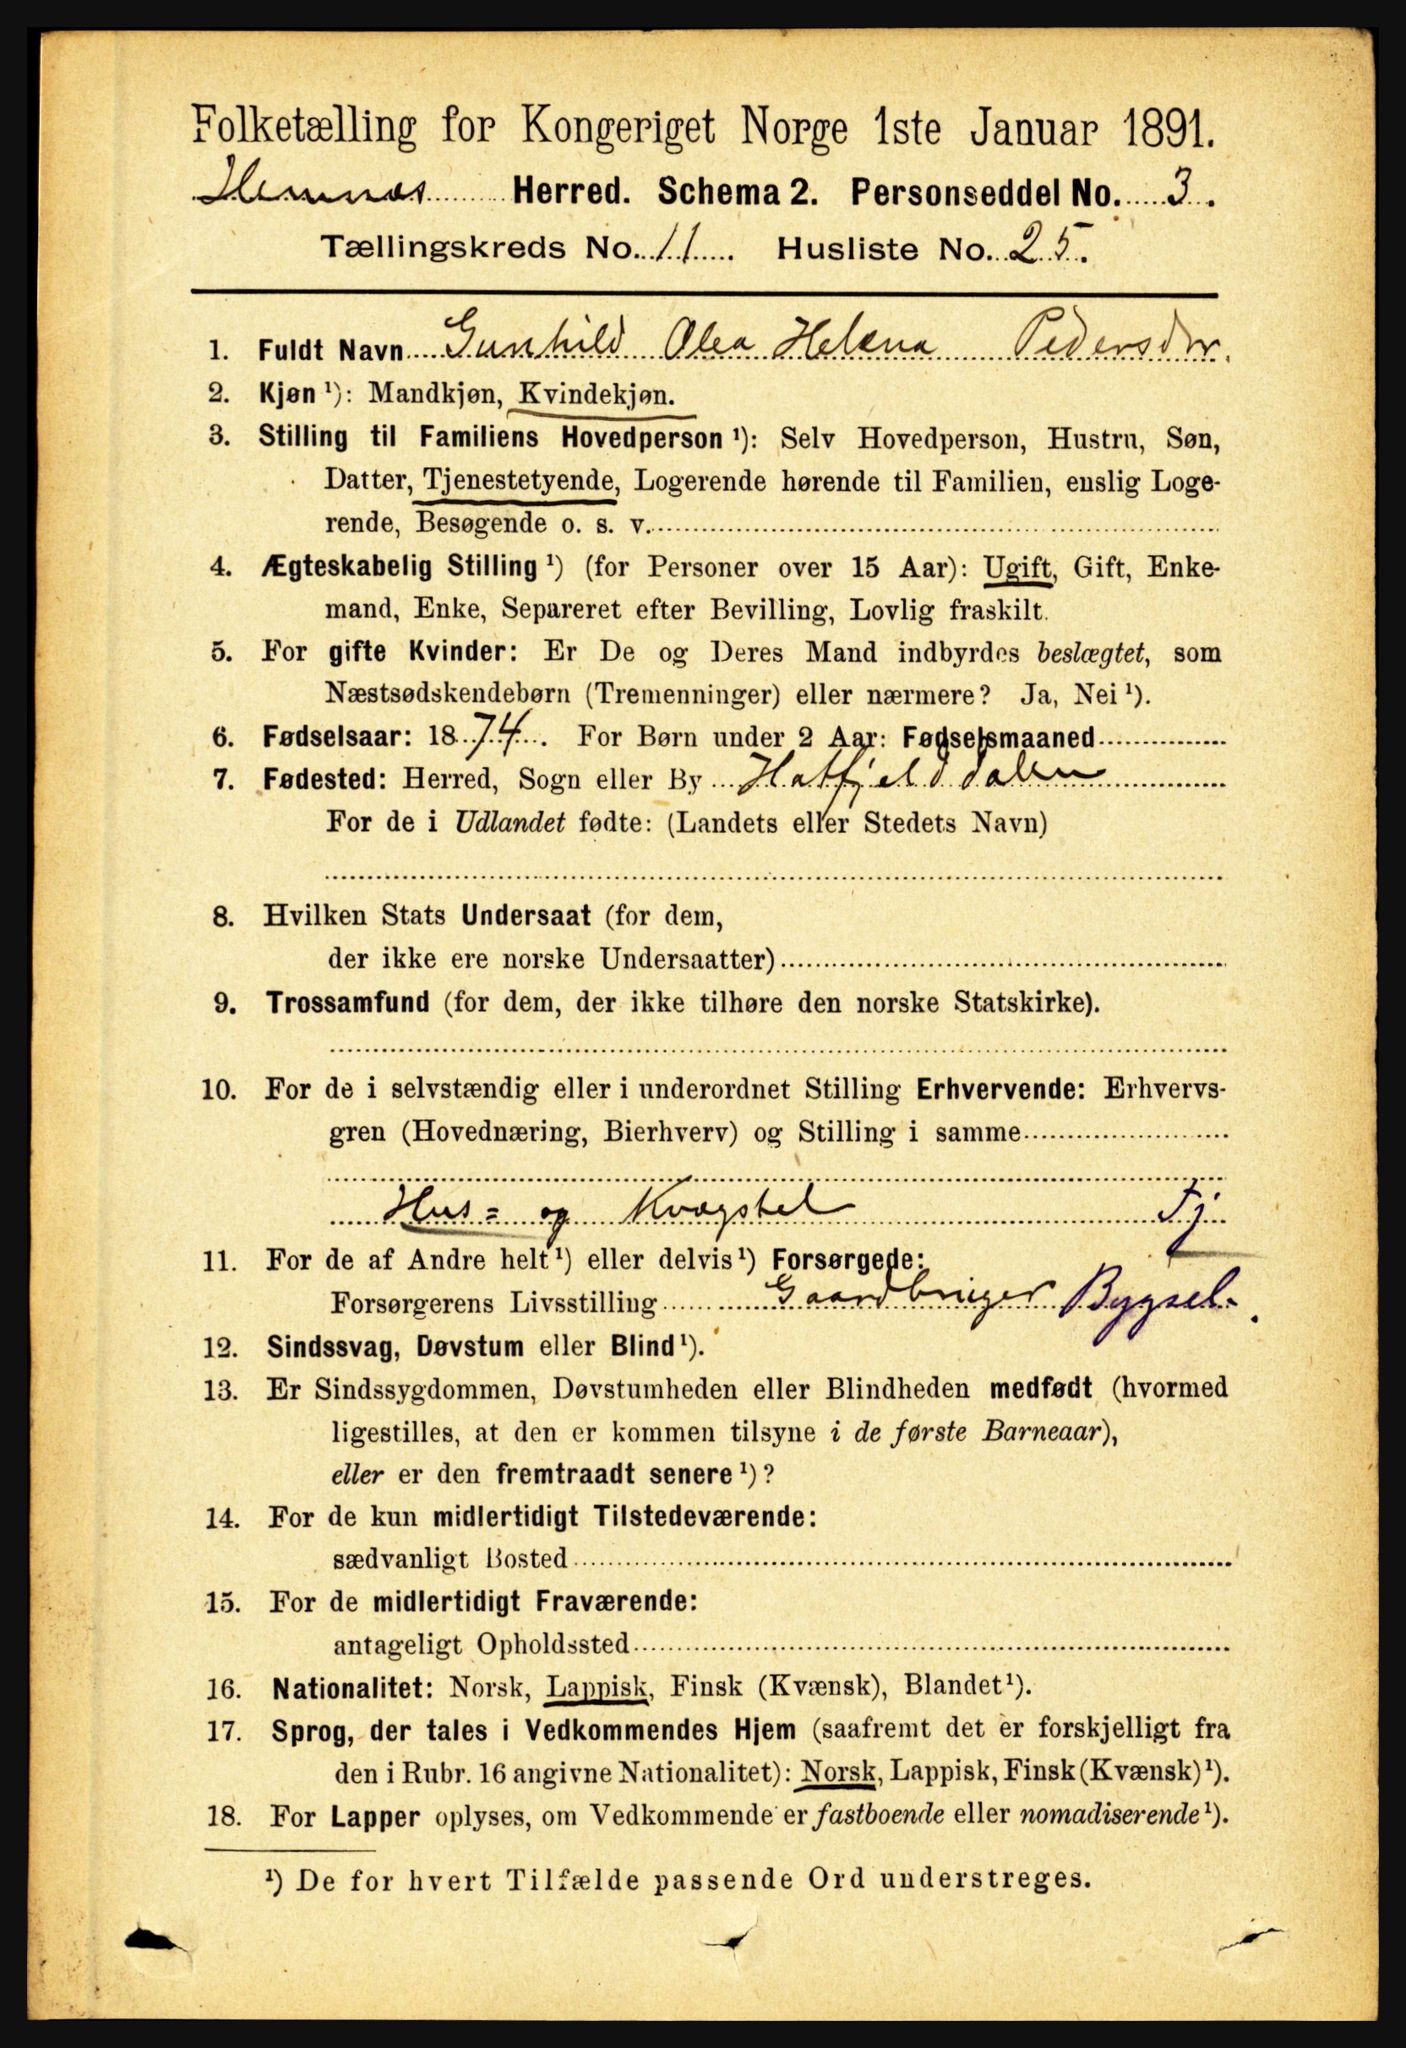 Folketælling for Kongeriget Norge 1ste Januar 1891.
Hemnæs Herred. Schema 2. Personseddel No. 3.
Tællingskreds No. 11. Husliste No. 25.
1. Fuldt Navn Gunhild Olea Helena Pedersdtr.
2. Kjøn ¹): Mandkjøn, Kvindekjøn.
3. Stilling til Familiens Hovedperson ¹): Selv Hovedperson, Hustru, Søn,
Datter, Tjenestetyende, Logerende hørende til Familien, enslig Loge-
rende, Besøgende o. s. v.
4. Ægteskabelig Stilling ¹) (for Personer over 15 Aar): Ugift, Gift, Enke-
mand, Enke, Separeret efter Bevilling, Lovlig fraskilt.
5. For gifte Kvinder: Er De og Deres Mand indbyrdes beslægtet, som
Næstsødskendebørn (Tremenninger) eller nærmere? Ja, Nei ¹).
6. Fødselsaar: 1874. For Børn under 2 Aar: Fødselsmaaned
7. Fødested: Herred, Sogn eller By Hatfjelddalen
For de i Udlandet fødte: (Landets eller Stedets Navn)
8. Hvilken Stats Undersaat (for dem,
der ikke ere norske Undersaatter)
9. Trossamfund (for dem, der ikke tilhøre den norske Statskirke).
10. For de i selvstændig eller i underordnet Stilling Erhvervende: Erhvervs-
gren (Hovednæring, Bierhverv) og Stilling i samme
Hus= og Kvægstel Tj
11. For de af Andre helt ¹) eller delvis ¹) Forsørgede:
Forsørgerens Livsstilling Gaardbruger Bygsel.
12. Sindssvag, Døvstum eller Blind ¹).
13. Er Sindssygdommen, Døvstumheden eller Blindheden medfødt (hvormed
ligestilles, at den er kommen tilsyne i de første Barneaar),
eller er den fremtraadt senere ¹)?
14. For de kun midlertidigt Tilstedeværende:
sædvanligt Bosted
15. For de midlertidigt Fraværende:
antageligt Opholdssted
16. Nationalitet: Norsk, Lappisk, Finsk (Kvænsk), Blandet ¹).
17. Sprog, der tales i Vedkommendes Hjem (saafremt det er forskjelligt fra
den i Rubr. 16 angivne Nationalitet): Norsk, Lappisk, Finsk (Kvænsk) ¹).
18. For Lapper oplyses, om Vedkommende er fastboende eller nomadiserende ¹).
¹) De for hvert Tilfælde passende Ord understreges.